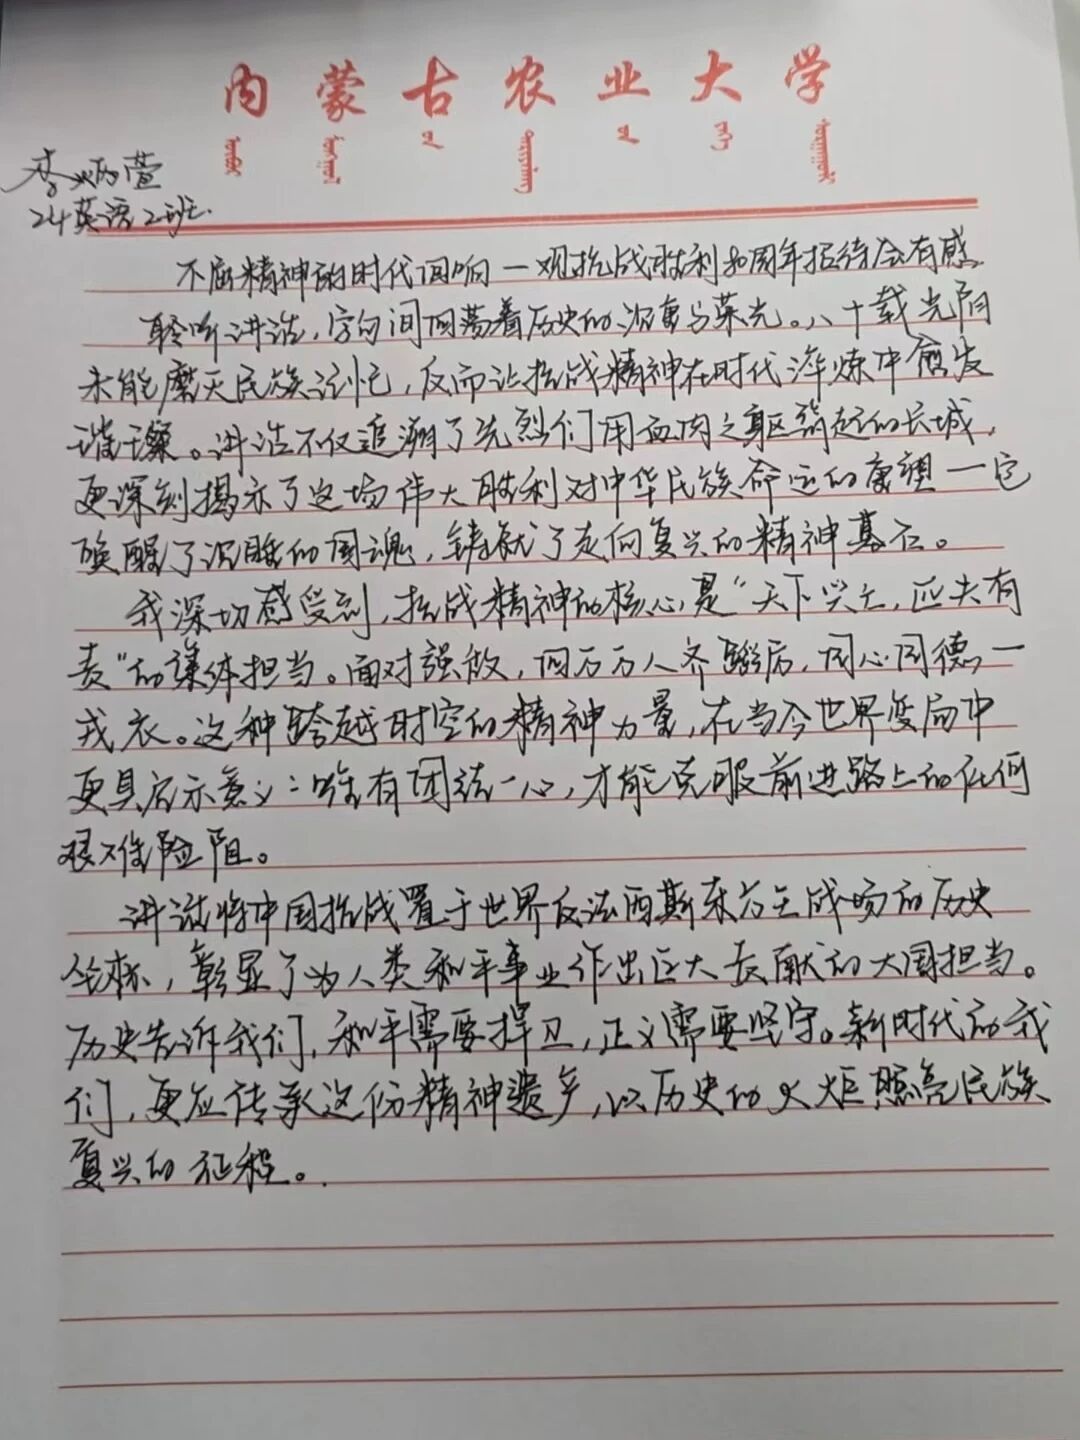 内蒙古农业大学
李炳萱
24英语2班.
不屈精神的时代回响一观抗战胜利80周年招待会有感
聆听讲话,字句间回荡着历史的沉重与荣光。八十载光阴
未能磨灭民族记忆,反而让抗战精神在时代淬炼中愈发
璀璨。讲话不仅追溯了先烈们用血肉之躯筑起的长城,
更深刻揭示了这场伟大胜利对中华民族命运的重塑一它
唤醒了沉睡的国魂,铸就了走向复兴的精神基石。
我深切感受到,抗战精神的核心,是"天下兴亡,匹夫有
责"的集体担当。面对强敌,四万万人齐蹈厉,同心同德一
戎衣。这种跨越时空的精神力量,在当今世界变局中
更具启示意义:唯有团结一心,才能克服前进路上的任何
艰难险阻。
讲话将中国抗战置于世界反法西斯东方主战场的历史
坐标,彰显了为人类和平事业作出巨大贡献的大国担当。
历史告诉我们,和平需要捍卫,正义需要坚守。新时代的我
们,更应传承这份精神遗产,以历史的火炬照亮民族
复兴的征程。.